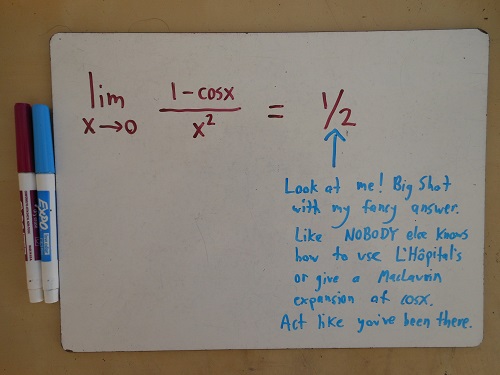 lim x→0 1-cosx / x² = 1/2
Look at me! Big Shot
with my fancy answer.
Like NOBODY else knows
how to use L'Hôpital's
or give a Maclaurin
expansion of cosx.
Act like you've been there.
EXPO